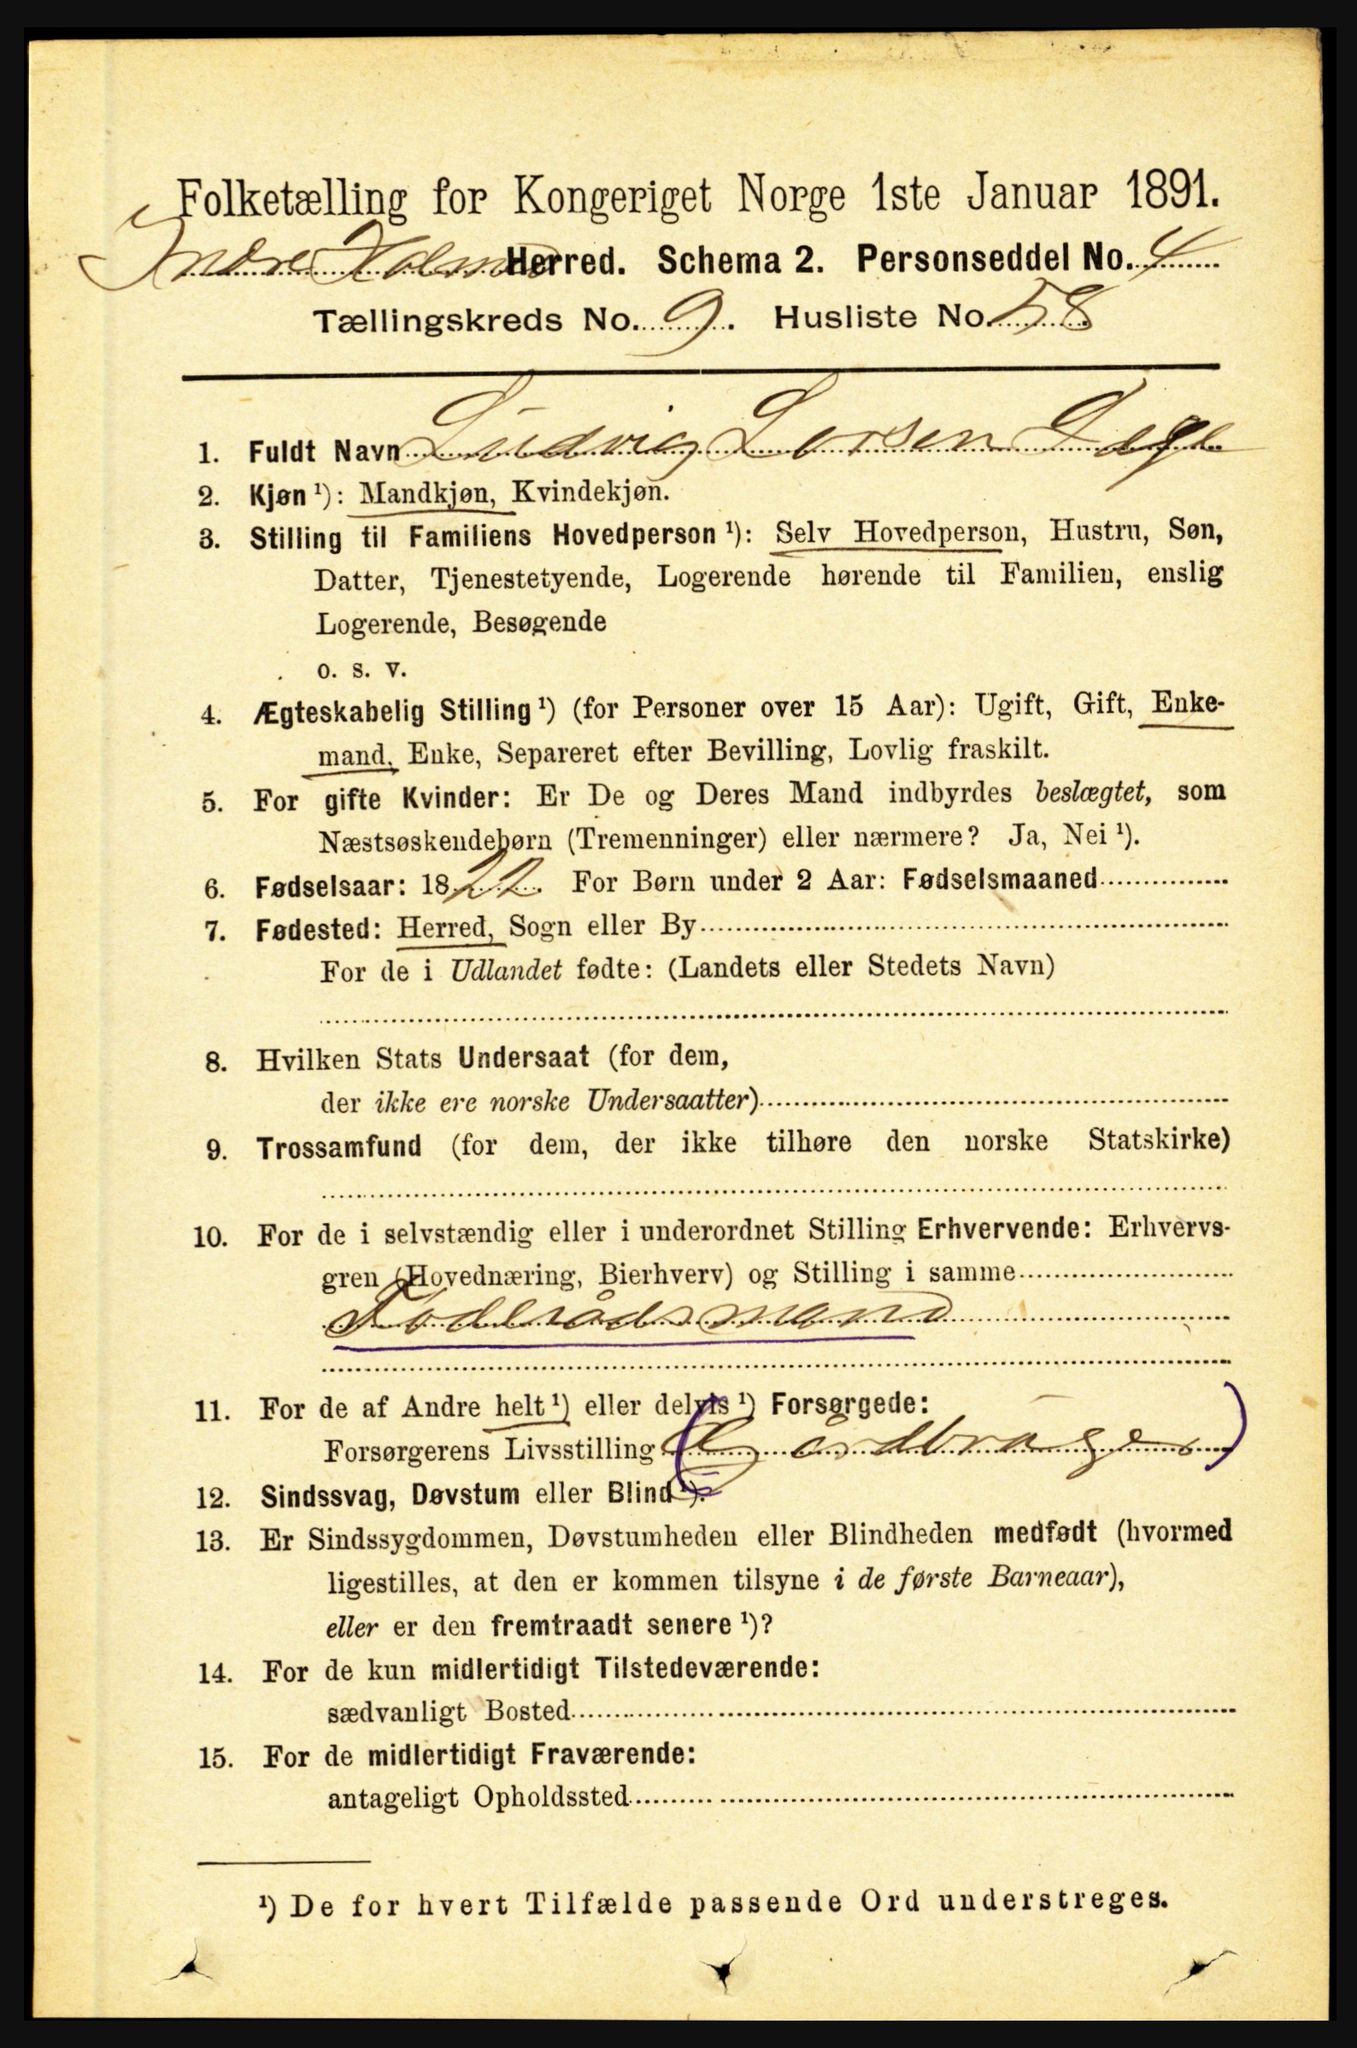 Folketælling for Kongeriget Norge 1ste Januar 1891.
Indre Holmed Herred. Schema 2. Personseddel No. 4
Tællingskreds No. 9. Husliste No. 58
1. Fuldt Navn Ludvig Larsen
2. Kjøn ¹): Mandkjøn, Kvindekjøn.
3. Stilling til Familiens Hovedperson ¹): Selv Hovedperson, Hustru, Søn,
Datter, Tjenestetyende, Logerende hørende til Familien, enslig
Logerende, Besøgende
o. s. v.
4. Ægteskabelig Stilling ¹) (for Personer over 15 Aar): Ugift, Gift, Enke-
mand, Enke, Separeret efter Bevilling, Lovlig fraskilt.
5. For gifte Kvinder: Er De og Deres Mand indbyrdes beslægtet, som
Næstsøskendebørn (Tremenninger) eller nærmere? Ja, Nei ¹).
6. Fødselsaar: 1822. For Børn under 2 Aar: Fødselsmaaned
7. Fødested: Herred, Sogn eller By
For de i Udlandet fødte: (Landets eller Stedets Navn)
8. Hvilken Stats Undersaat (for dem,
der ikke ere norske Undersaatter)
9. Trossamfund (for dem, der ikke tilhøre den norske Statskirke)
10. For de i selvstændig eller i underordnet Stilling Erhvervende: Erhvervs-
gren (Hovednæring, Bierhverv) og Stilling i samme
Foderådsmand
11. For de af Andre helt ¹) eller delvis ¹) Forsørgede:
Forsørgerens Livsstilling (Gårdbruger)
12. Sindssvag, Døvstum eller Blind ¹).
13. Er Sindssygdommen, Døvstumheden eller Blindheden medfødt (hvormed
ligestilles, at den er kommen tilsyne i de første Barneaar),
eller er den fremtraadt senere ¹)?
14. For de kun midlertidigt Tilstedeværende:
sædvanligt Bosted
15. For de midlertidigt Fraværende:
antageligt Opholdssted
¹) De for hvert Tilfælde passende Ord understreges.